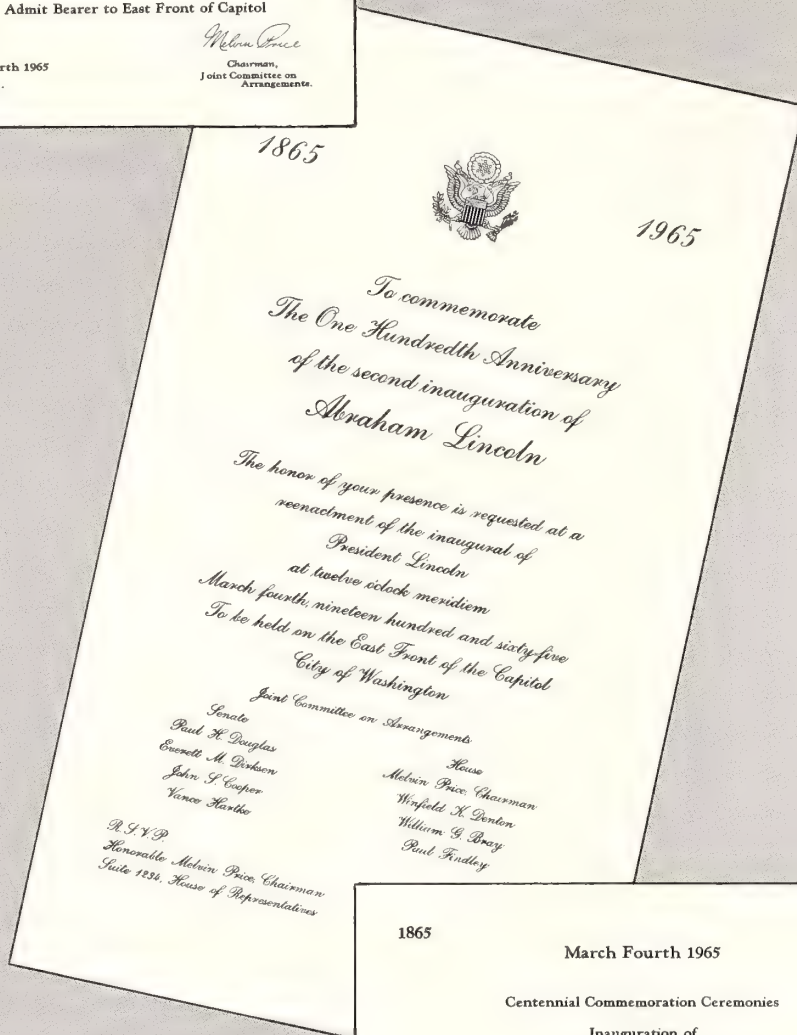 Admit Bearer to East Front of Capitol
Melvin Price
rth 1965
Chairman,
Joint Committee on
Arrangements.
1865
1965
To commemorate
The One Hundredth Anniversary
of the second inauguration of
Abraham Lincoln
The honor of your presence is requested at a
reenactment of the inaugural of
President Lincoln
at twelve o'clock meridiem
March fourth, nineteen hundred and sixty-five
To be held on the East Front of the Capitol
City of Washington
Joint Committee on Arrangements
Senate
Paul H. Douglas
Everett M. Dirksen
John S. Cooper
Vance Hartke
House
Melvin Price, Chairman
Winfield K. Denton
William G. Bray
Paul Findley
R.S.V.P.
Honorable Melvin Price, Chairman
Suite 1234, House of Representatives
1865
March Fourth 1965
Centennial Commemoration Ceremonies
Inauguration of